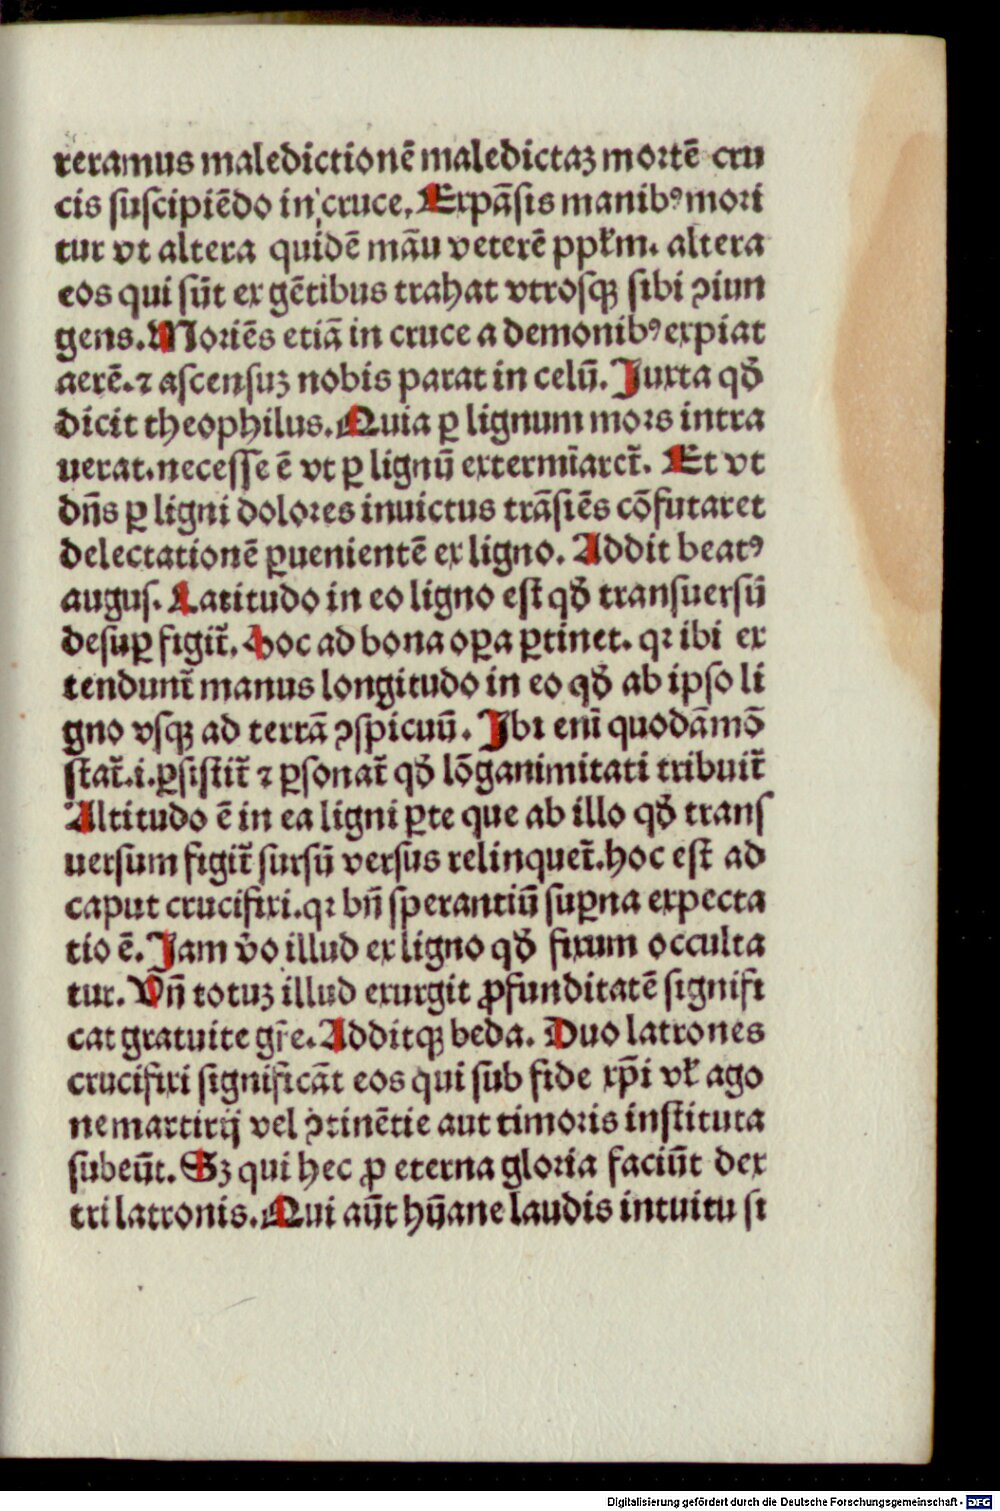 reramus maledictionē maledictaꝫ mortē cru
cis suscipiēdo in cruce. Expāsis manibꝰ mori
tur vt altera quidē māu veterē ppłm. altera
eos qui sūt ex gētibus trahat vtrosqꝫ sibi ꝯiun
gens. Moriēs etiā in cruce a demonibꝰ expiat
aerē. ⁊ ascensuꝫ nobis parat in celū. Juxta qð
dicit theophilus. Quia ꝑ lignum mors intra
uerat. necesse ē vt ꝑ lignū extermīaret̄. Et vt
dn̄s ꝑ ligni dolores inuictus trāsiēs cōfutaret
delectationē ꝑuenientē ex ligno. Addit beatꝰ
augus. Latitudo in eo ligno est qð transuersū
desuꝑ figit̄. Hoc ad bona oꝑa ꝑtinet. qꝛ ibi ex
tendunt̄ manus longitudo in eo qð ab ipso li
gno vsqꝫ ad terrā ꝯspicuū. Ibi enī quodāmō
stat̄. i. ꝑsistit̄ ⁊ ꝑsonat̄ qð lōganimitati tribuit̄
Altitudo ē in ea ligni ꝑte que ab illo qð trans
uersum figit̄ sursū versus relinquet̄. hoc est ad
caput crucifixi. qꝛ bn̄ sperantiū suꝑna expecta
tio ē. Jam v̄o illud ex ligno qð fixum occulta
tur. Vn̄ totuꝫ illud exurgit ꝓfunditatē signifi
cat gratuite gr̄e. Additqꝫ beda. Duo latrones
crucifixi significāt eos qui sub fide xp̄i vł ago
ne martirij vel ꝯtinētie aut timoris instituta
subeūt. Sꝫ qui hec ꝓ eterna gloria faciūt dex
tri latronis. Qui aūt hūane laudis intuitu si
Digitalisierung gefördert durch die Deutsche Forschungsgemeinschaft - DFG